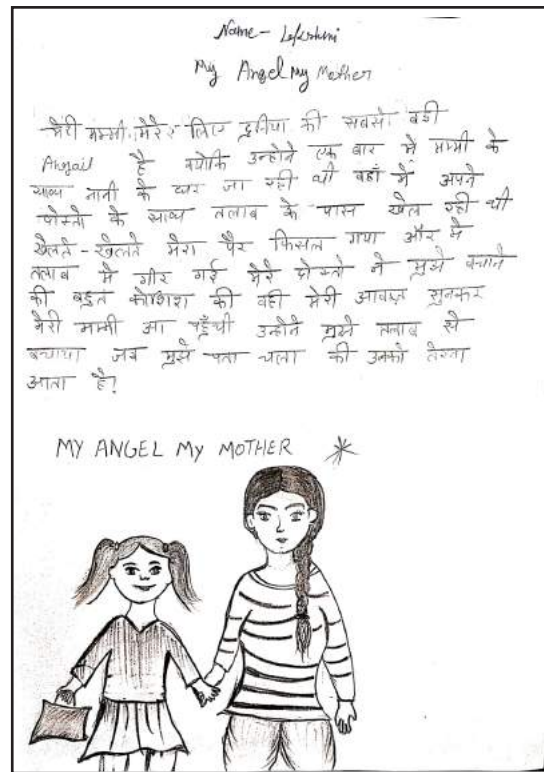 Name - Lakshmi
My Angel My Mother
मेरी मम्मी मेरे लिए दुनिया की सबसे बड़ी
Angail है क्योकि उन्होने एक बार में मम्मी के
साथ नानी के घर जा रही थी वहाँ में अपने
दोस्तो के साथ तलाब के पास खेल रही थी
खेलते - खेलते मेरा पैर फिसल गया और मै
तलाब मे गीर गई मेरे दोस्तो ने मुझे बचाने
की बहुत कोशिश की वही मेरी आवाज़ सुनकर
मेरी मम्मी आ पहुँची उन्होने मुझे तलाब से
बचाया जब मुझे पता चला की उनको तेरना
आता है?
MY ANGEL MY MOTHER